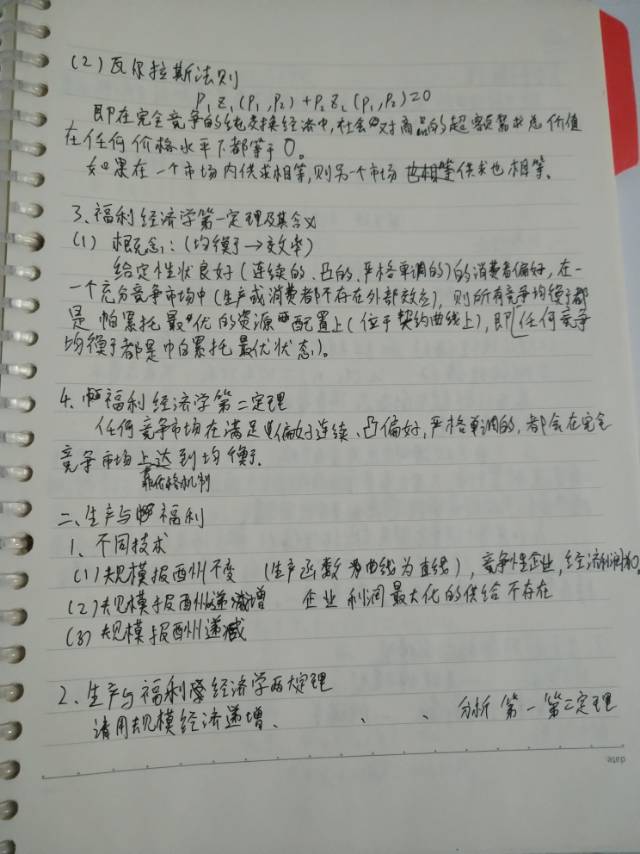 (2) 瓦尔拉斯法则
P₁Z₁(P₁,P₂)+P₂Z₂(P₁,P₂)=0
即在完全竞争的纯交换经济中,社会对商品的超额需求总价值
在任何价格水平下都等于0。
如果在一个市场内供求相等,则另一个市场供求也相等。
3、福利经济学第一定理及其含义
(1) 概念:(均衡→效率)
给定性状良好(连续的、凸的、严格单调的)的消费者偏好,在一
个充分竞争市场中(生产或消费者都不存在外部效应),则所有竞争均衡都
是帕累托最优的资源配置上(位于契约曲线上),即(任何竞争
均衡都是帕累托最优状态)。
4、福利经济学第二定理
任何竞争市场在满足偏好连续、凸偏好,严格单调的,都会在完全
竞争市场上达到均衡.
靠价格机制
二、生产与福利
1、不同技术
(1) 规模报酬不变 (生产函数曲线为直线),竞争性企业,经济利润为0
(2) 规模报酬递增 企业利润最大化的供给不存在
(3) 规模报酬递减
2、生产与福利经济学两大定理
请用规模经济递增、 、 、 分析第一第二定理
date